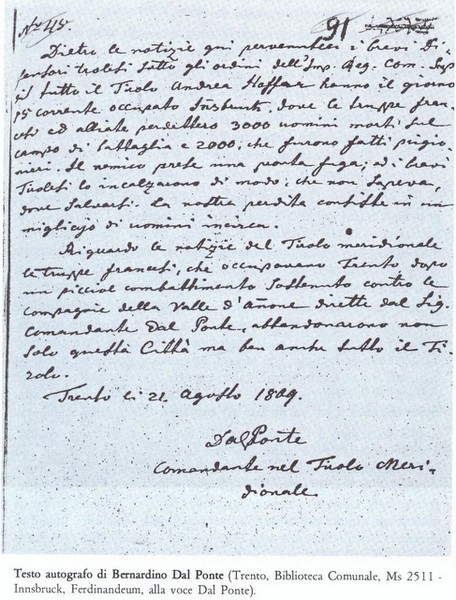 No 45.
91
Dietro le notizie qui pervenuteci i bravi Di-
fensori trolesi sotto gli ordini dell'Imp. Reg. Com. Sup
di tutto il Tirolo Andrea Hoffer hanno il giorno
15 corrente occupato Insbruk, dove le truppe fran-
cesi ed alliate perdettero 3000 uomini morti sul
campo di battaglia e 2000, che furono fatti prigio-
nieri. Il nemico prese una pronta fuga; ed i bravi
Tirolesi lo incalzarono di modo, che non sapeva,
dove salvarsi. La nostra perdita consisste in un
migliajo di uomini incirca.
Riguardo le notizie del Tirolo meridionale
le truppe francesi, che occupavano Trento dopo
un picciol combattimento sostenuto contro le
compagnie della Valle d'Anone dirette dal Sig.
Comandante Dal Ponte, abbandonarono non
solo questa Città ma ben anche tutto il Ti-
rolo.
Trento li 21 Agosto 1809.
Dal Ponte
Comandante nel Tirolo Meri-
dionale
Testo autografo di Bernardino Dal Ponte (Trento, Biblioteca Comunale, Ms 2511 -
Innsbruck, Ferdinandeum, alla voce Dal Ponte).